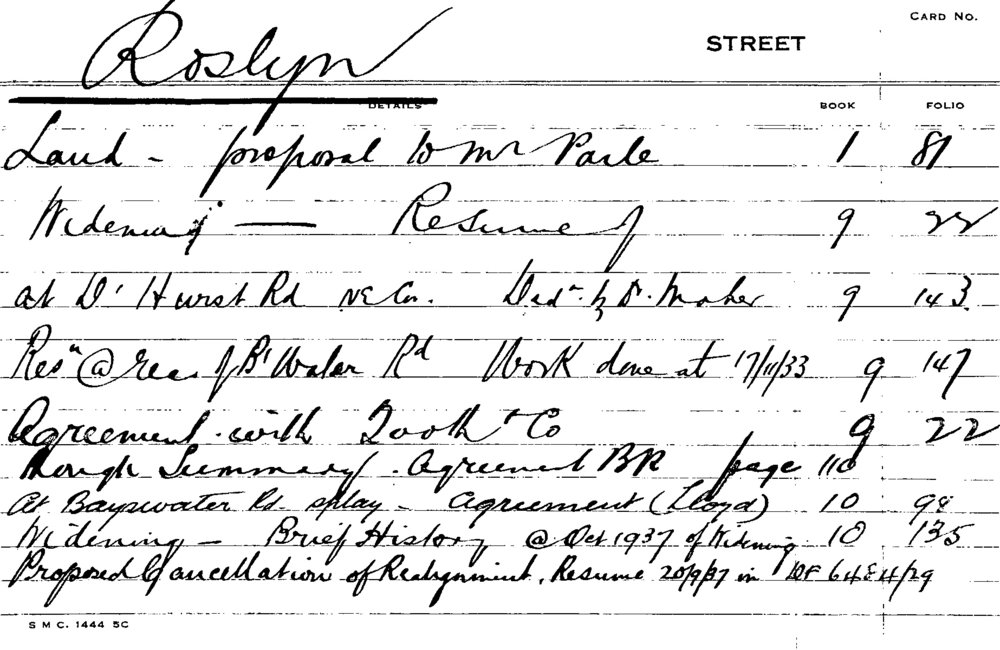 CARD NO.
Roslyn STREET
DETAILS BOOK FOLIO
Land - proposal to Mr Parle 1 81
Widening — Resume of 9 22
at D' Hurst Rd NE Cn. Dedn. by D. Maher 9 143
Resn @ rear of B' Water Rd Work done at 17/11/33 9 147
Agreement with Tooth & Co 9 22
Rough Summary. Agreement BR page 110
At Bayswater Rd. splay - agreement (Lloyd) 10 98
Widening - Brief History @ Oct 1937 of Widening 10 135
Proposed Cancellation of Realignment, Resume 20/9/37 in 6484/29
S M C. 1444 5C